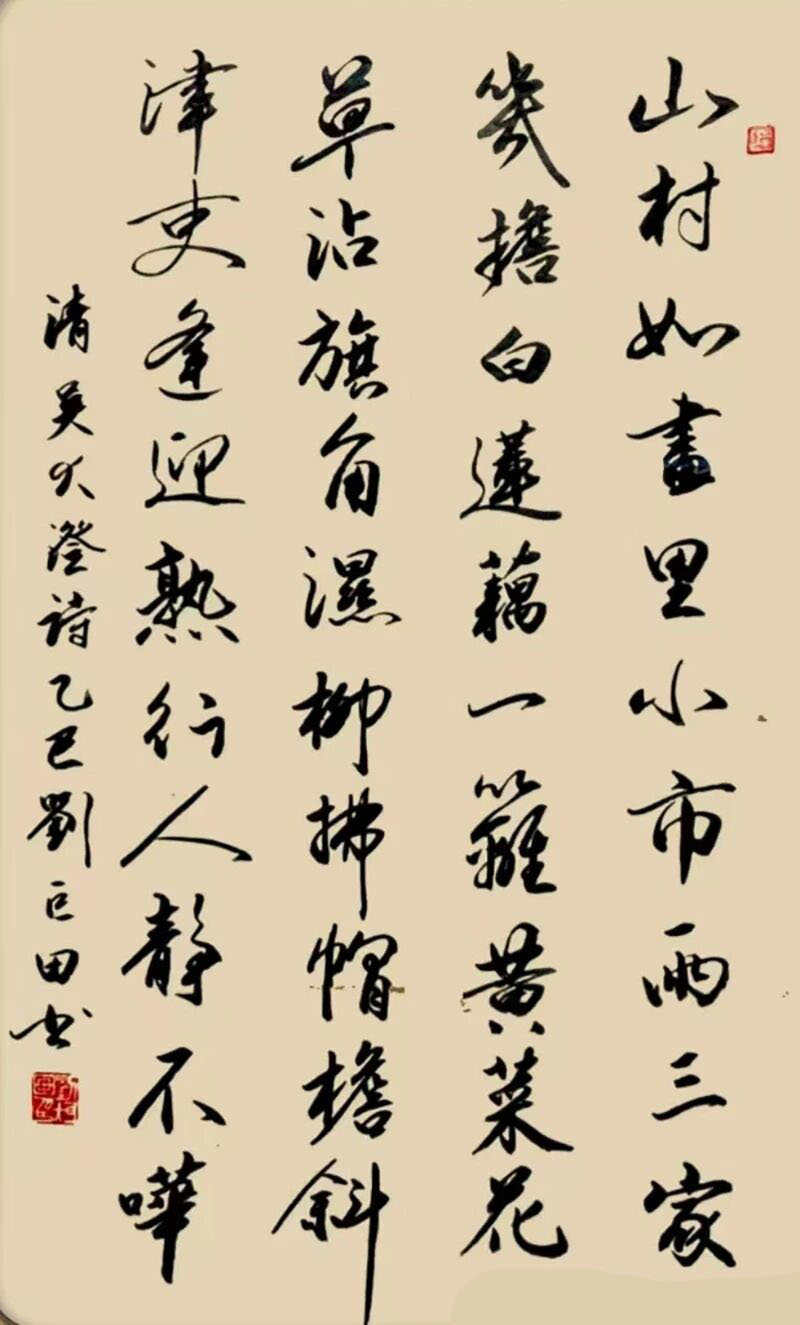 山村如畫里小市兩三家
幾擔白蓮藕一籬黃菜花
草沾旗角濕柳拂帽檐斜
津吏逢迎熟行人靜不嘩
清吴大澄诗乙巳劉巨田书